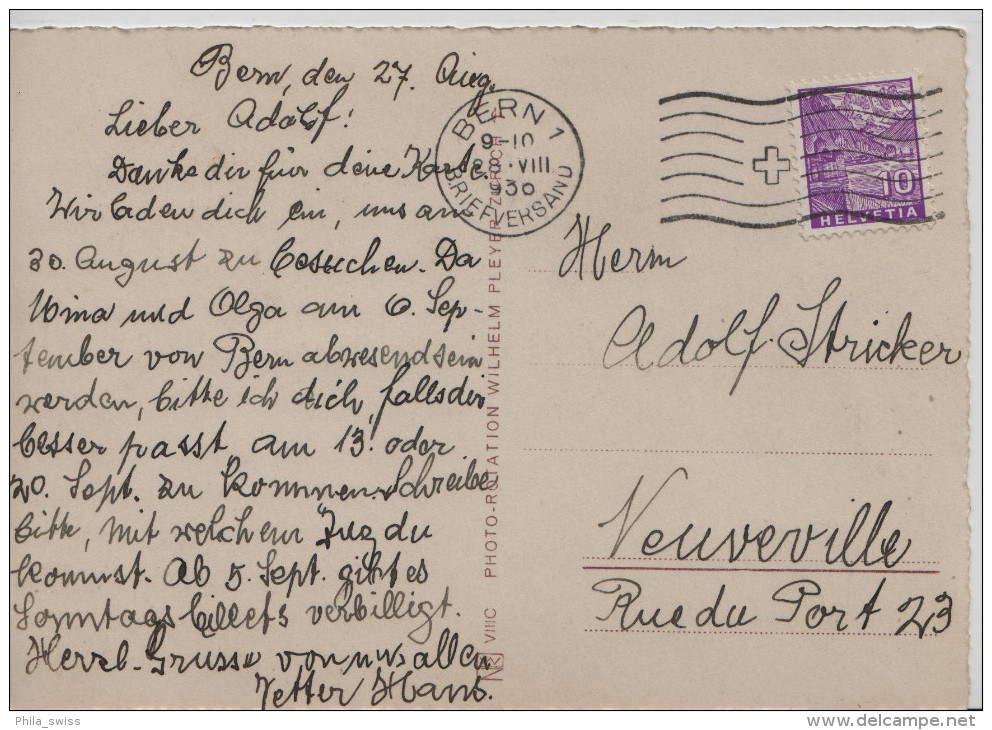 Bern, den 27. Aug.
Lieber Adolf!
Danke dir für deine Karte.
Wir laden dich ein, uns am
30. August zu besuchen. Da
und Olga am 6. Sep-
tember von Bern abwesend sein
werden, bitte ich dich, falls dir
besser passt, am 13. oder
20. Sept. zu kommen. Schreibe
bitte, mit welchem Zug du
kommst. Ab 5. Sept. gibt es
Sonntagsbillets verbilligt.
Herzl. Grüsse von uns allen
Vetter Hans.
BERN 1
9-10
28.VIII
1936
BRIEFVERSAND
10
HELVETIA
VIIIC PHOTO-ROTATION WILHELM PLEYER ZÜRICH
Herrn
Adolf Stricker
Neuveville
Rue du Port 23
Phila_swiss
http://www.delcampe.net